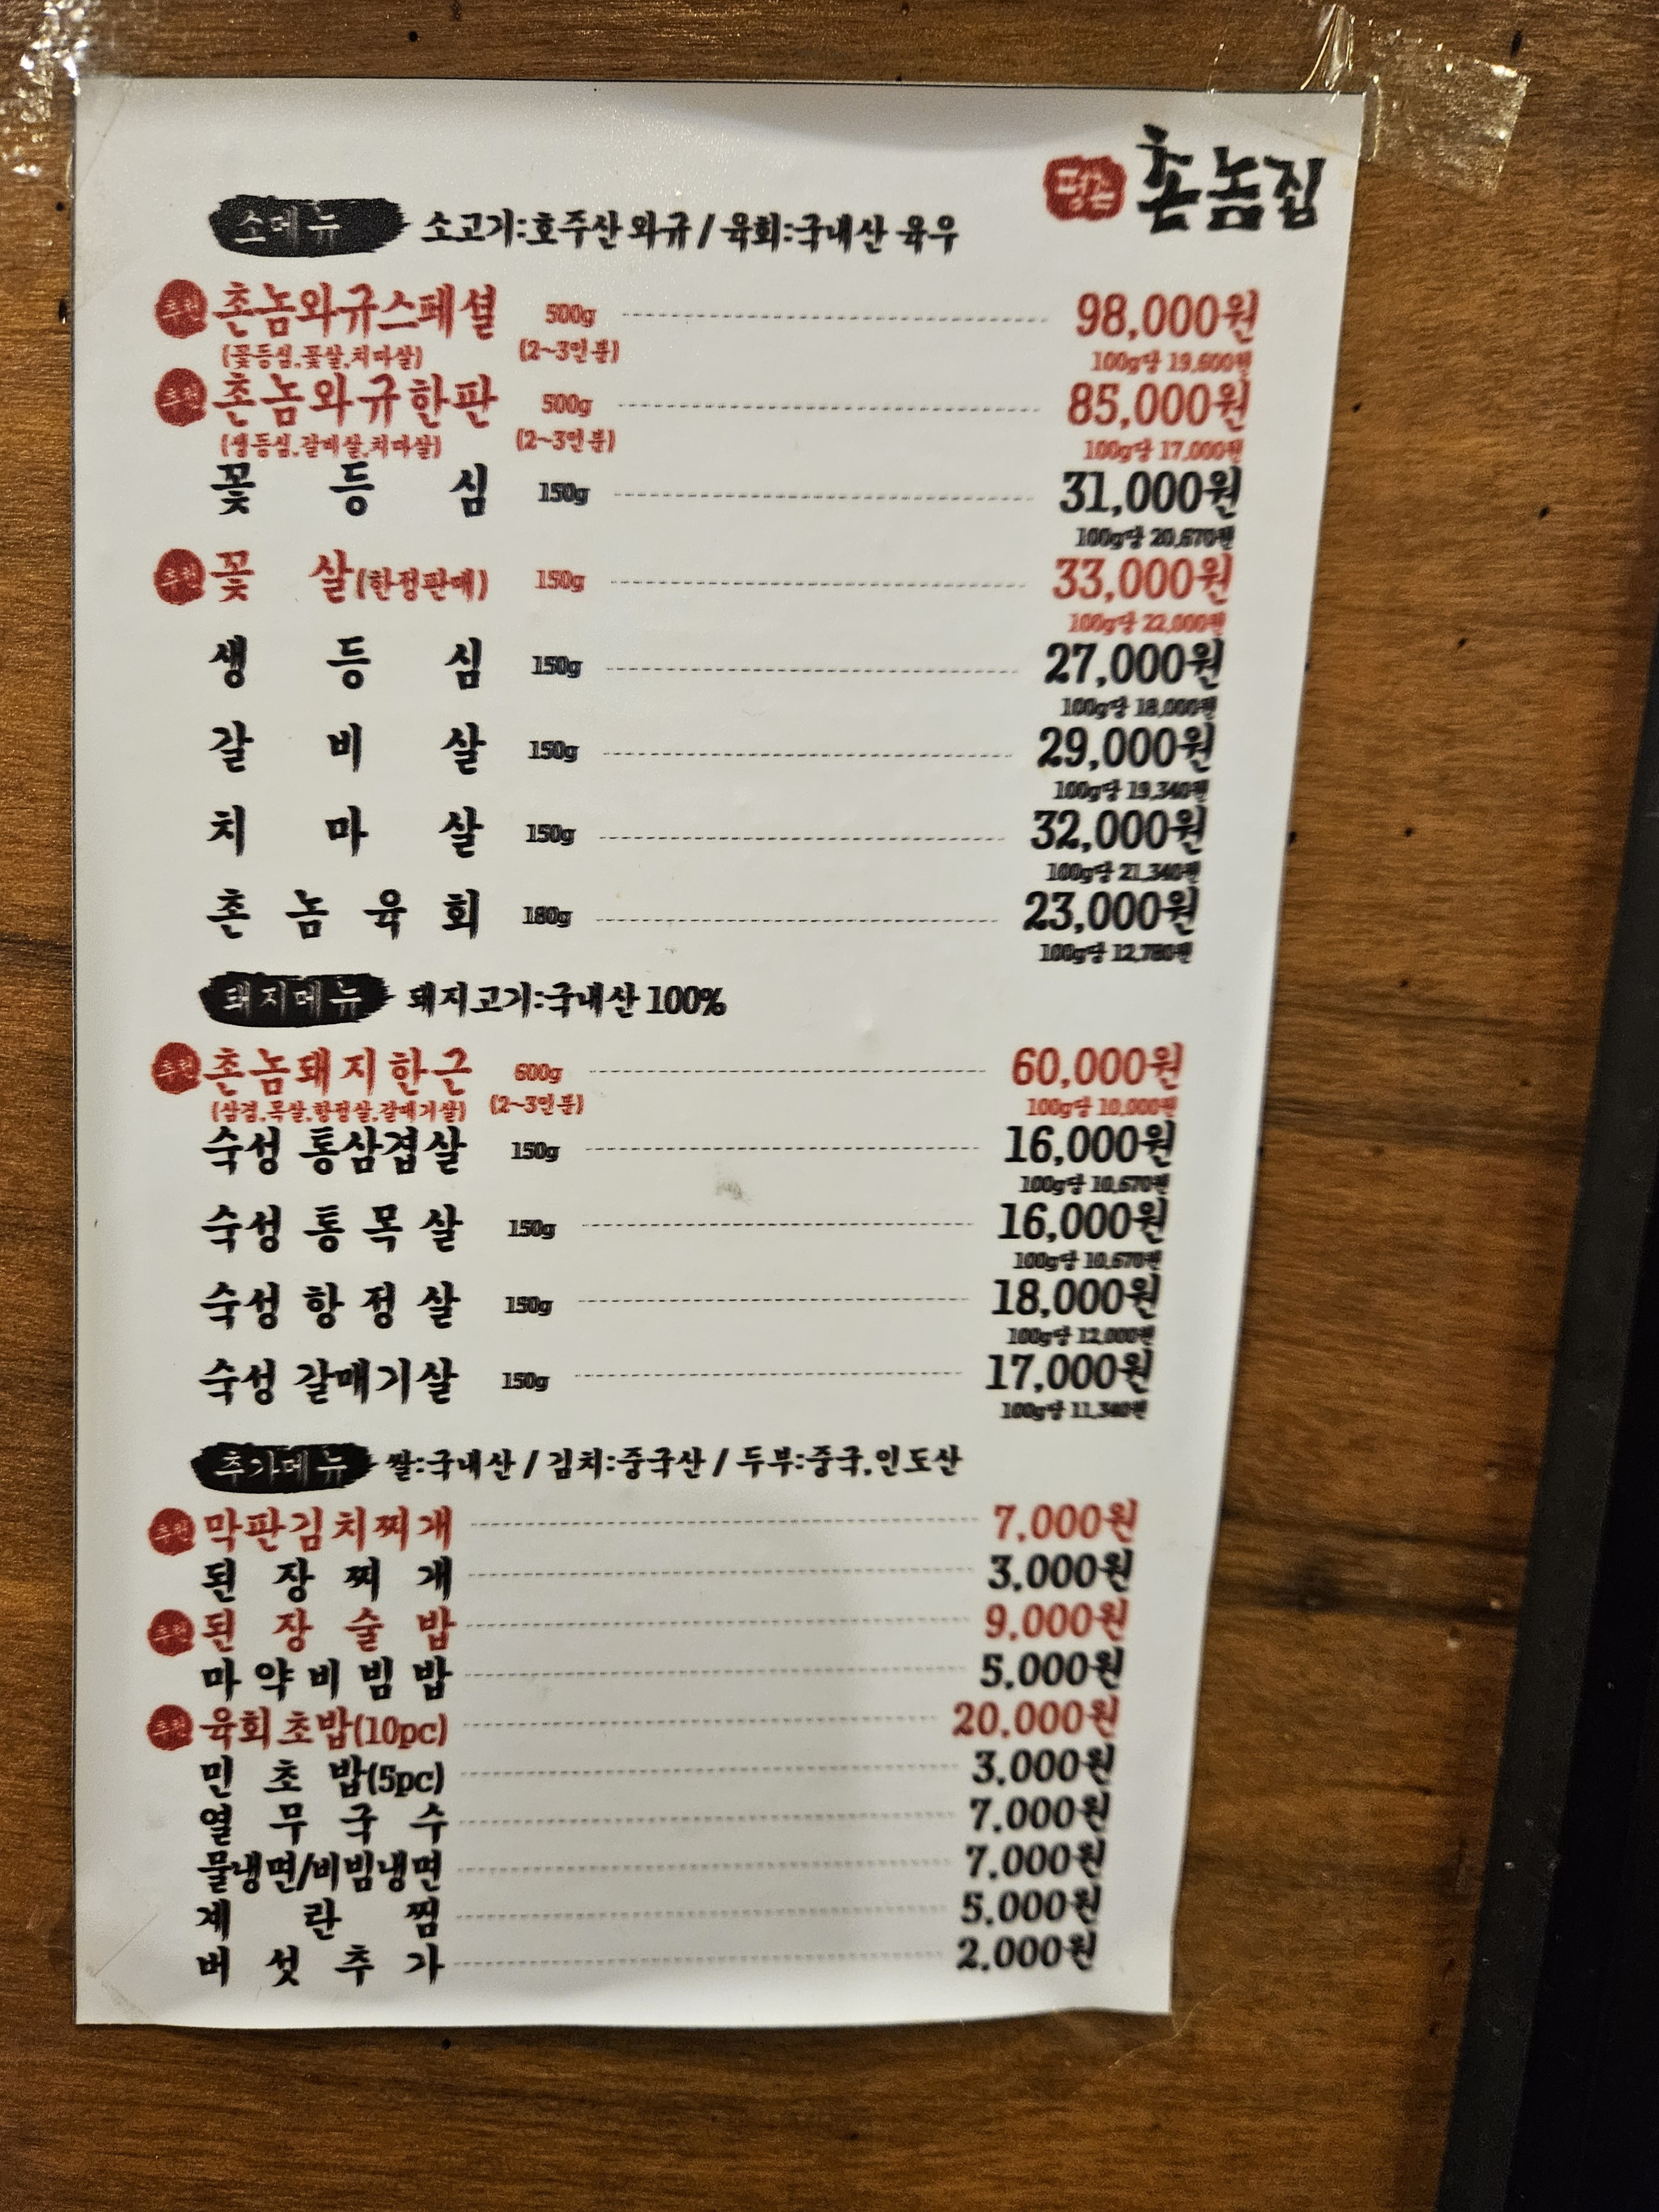 촌놈집
소메뉴 소고기:호주산 와규 / 육회:국내산 육우
추천 촌놈와규스페셜 500g 98,000원
(꽃등심,꽃살,치마살) (2~3인분) 100g당 19,600원
추천 촌놈와규한판 500g 85,000원
(생등심,갈비살,치마살) (2~3인분) 100g당 17,000원
꽃등심 150g 31,000원
100g당 20,670원
추천 꽃살(한정판매) 150g 33,000원
100g당 22,000원
생등심 150g 27,000원
100g당 18,000원
갈비살 150g 29,000원
100g당 19,340원
치마살 150g 32,000원
100g당 21,340원
촌놈육회 180g 23,000원
100g당 12,780원
돼지메뉴 돼지고기:국내산 100%
추천 촌놈돼지한근 600g 60,000원
(삼겹,목살,항정살,갈매기살) (2~3인분) 100g당 10,000원
숙성 통삼겹살 150g 16,000원
100g당 10,670원
숙성 통목살 150g 16,000원
100g당 10,670원
숙성 항정살 150g 18,000원
100g당 12,000원
숙성 갈매기살 150g 17,000원
100g당 11,340원
추가메뉴 쌀:국내산 / 김치:중국산 / 두부:중국,인도산
추천 막판김치찌개 7,000원
된장찌개 3,000원
추천 된장술밥 9,000원
마약비빔밥 5,000원
추천 육회초밥(10pc) 20,000원
민초밥(5pc) 3,000원
열무국수 7,000원
물냉면/비빔냉면 7,000원
계란찜 5,000원
버섯추가 2,000원